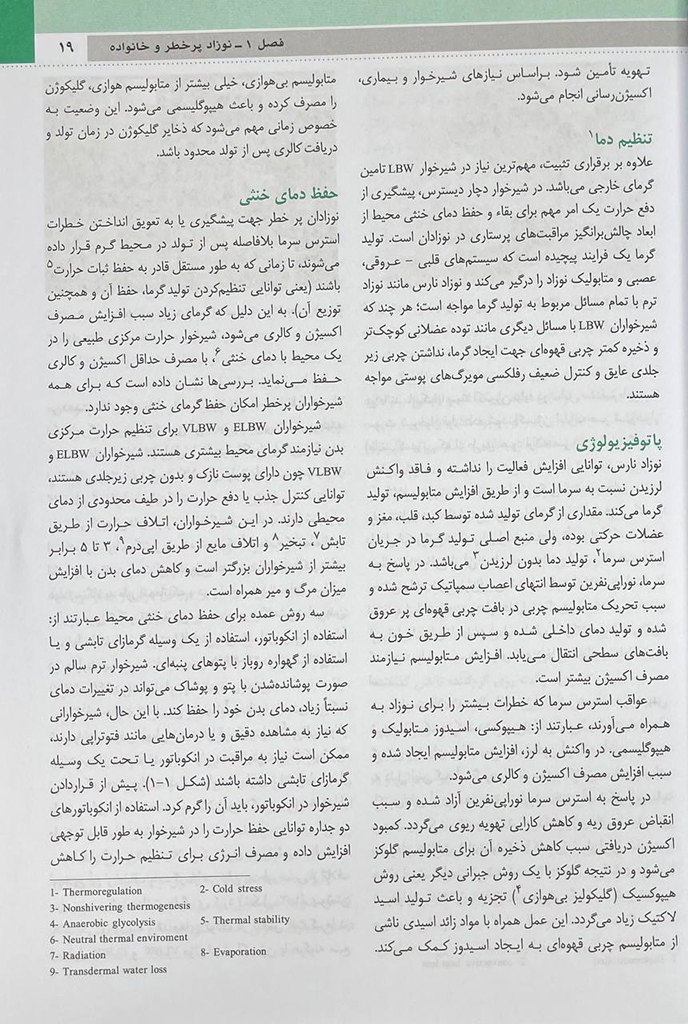 فصل ۱ ـ نوزاد پرخطر و خانواده
۱۹
تهویه تأمین شود. براساس نیازهای شیرخوار و بیماری،
اکسیژن‌رسانی انجام می‌شود.
تنظیم دما۱
علاوه بر برقراری تثبیت، مهم‌ترین نیاز در شیرخوار LBW تامین
گرمای خارجی می‌باشد. در شیرخوار دچار دیسترس، پیشگیری از
دفع حرارت یک امر مهم برای بقاء و حفظ دمای خنثی محیط از
ابعاد چالش‌برانگیز مراقبت‌های پرستاری در نوزادان است. تولید
گرما یک فرایند پیچیده است که سیستم‌های قلبی - عروقی،
عصبی و متابولیک نوزاد را درگیر می‌کند و نوزاد نارس مانند نوزاد
ترم با تمام مسائل مربوط به تولید گرما مواجه است؛ هر چند که
شیرخواران LBW با مسائل دیگری مانند توده عضلانی کوچک‌تر
و ذخیره کمتر چربی قهوه‌ای جهت ایجاد گرما، نداشتن چربی زیر
جلدی عایق و کنترل ضعیف رفلکسی مویرگ‌های پوستی مواجه
هستند.
پاتوفیزیولوژی
نوزاد نارس، توانایی افزایش فعالیت را نداشته و فاقد واکنش
لرزیدن نسبت به سرما است و از طریق افزایش متابولیسم، تولید
گرما می‌کند. مقداری از گرمای تولید شده توسط کبد، قلب، مغز و
عضلات حرکتی بوده، ولی منبع اصلی تولید گرما در جریان
استرس سرما۲، تولید دما بدون لرزیدن۳ می‌باشد. در پاسخ به
سرما، نوراپی‌نفرین توسط انتهای اعصاب سمپاتیک ترشح شده و
سبب تحریک متابولیسم چربی در بافت چربی قهوه‌ای پر عروق
شده و تولید دمای داخلی شده و سپس از طریق خون به
بافت‌های سطحی انتقال می‌یابد. افزایش متابولیسم نیازمند
مصرف اکسیژن بیشتر است.
عواقب استرس سرما که خطرات بیشتر را برای نوزاد به
همراه می‌آورند، عبارتند از: هیپوکسی، اسیدوز متابولیک و
هیپوگلیسمی. در واکنش به لرز، افزایش متابولیسم ایجاد شده و
سبب افزایش مصرف اکسیژن و کالری می‌شود.
در پاسخ به استرس سرما نوراپی‌نفرین آزاد شده و سبب
انقباض عروق ریه و کاهش کارایی تهویه ریوی می‌گردد. کمبود
اکسیژن دریافتی سبب کاهش ذخیره آن برای متابولیسم گلوکز
می‌شود و در نتیجه گلوکز با یک روش جبرانی دیگر یعنی روش
هیپوکسیک (گلیکولیز بی‌هوازی۴) تجزیه و باعث تولید اسید
لاکتیک زیاد می‌گردد. این عمل همراه با مواد زائد اسیدی ناشی
از متابولیسم چربی قهوه‌ای به ایجاد اسیدوز کمک می‌کند.
متابولیسم بی‌هوازی، خیلی بیشتر از متابولیسم هوازی، گلیکوژن
را مصرف کرده و باعث هیپوگلیسمی می‌شود. این وضعیت به
خصوص زمانی مهم می‌شود که ذخایر گلیکوژن در زمان تولد و
دریافت کالری پس از تولد محدود باشد.
حفظ دمای خنثی
نوزادان پر خطر جهت پیشگیری یا به تعویق انداختن خطرات
استرس سرما بلافاصله پس از تولد در محیط گرم قرار داده
می‌شوند، تا زمانی که به طور مستقل قادر به حفظ ثبات حرارت۵
باشند (یعنی توانایی تنظیم‌کردن تولید گرما، حفظ آن و همچنین
توزیع آن). به این دلیل که گرمای زیاد سبب افزایش مصرف
اکسیژن و کالری می‌شود، شیرخوار حرارت مرکزی طبیعی را در
یک محیط با دمای خنثی۶، با مصرف حداقل اکسیژن و کالری
حفظ می‌نماید. بررسی‌ها نشان داده است که برای همه
شیرخواران پرخطر امکان حفظ گرمای خنثی وجود ندارد.
شیرخواران ELBW و VLBW برای تنظیم حرارت مرکزی
بدن نیازمند گرمای محیط بیشتری هستند. شیرخواران ELBW و
VLBW چون دارای پوست نازک و بدون چربی زیرجلدی هستند،
توانایی کنترل جذب یا دفع حرارت را در طیف محدودی از دمای
محیطی دارند. در این شیرخواران، اتلاف حرارت از طریق
تابش۷، تبخیر۸ و اتلاف مایع از طریق اپی‌درم۹، ۳ تا ۵ برابر
بیشتر از شیرخواران بزرگتر است و کاهش دمای بدن با افزایش
میزان مرگ و میر همراه است.
سه روش عمده برای حفظ دمای خنثی محیط عبارتند از:
استفاده از انکوباتور، استفاده از یک وسیله گرمازای تابشی و یا
استفاده از گهواره روباز با پتوهای پنبه‌ای. شیرخوار ترم سالم در
صورت پوشانده‌شدن با پتو و پوشاک می‌تواند در تغییرات دمای
نسبتاً زیاد، دمای بدن خود را حفظ کند. با این حال، شیرخوارانی
که نیاز به مشاهده دقیق و یا درمان‌هایی مانند فتوتراپی دارند،
ممکن است نیاز به مراقبت در انکوباتور یا تحت یک وسیله
گرمازای تابشی داشته باشند (شکل ۱-۱). پیش از قراردادن
شیرخوار در انکوباتور، باید آن را گرم کرد. استفاده از انکوباتورهای
دو جداره توانایی حفظ حرارت را در شیرخوار به طور قابل توجهی
افزایش داده و مصرف انرژی برای تنظیم حرارت را کاهش
1- Thermoregulation 2- Cold stress
3- Nonshivering thermogenesis
4- Anaerobic glycolysis 5- Thermal stability
6- Neutral thermal enviroment
7- Radiation 8- Evaporation
9- Transdermal water loss